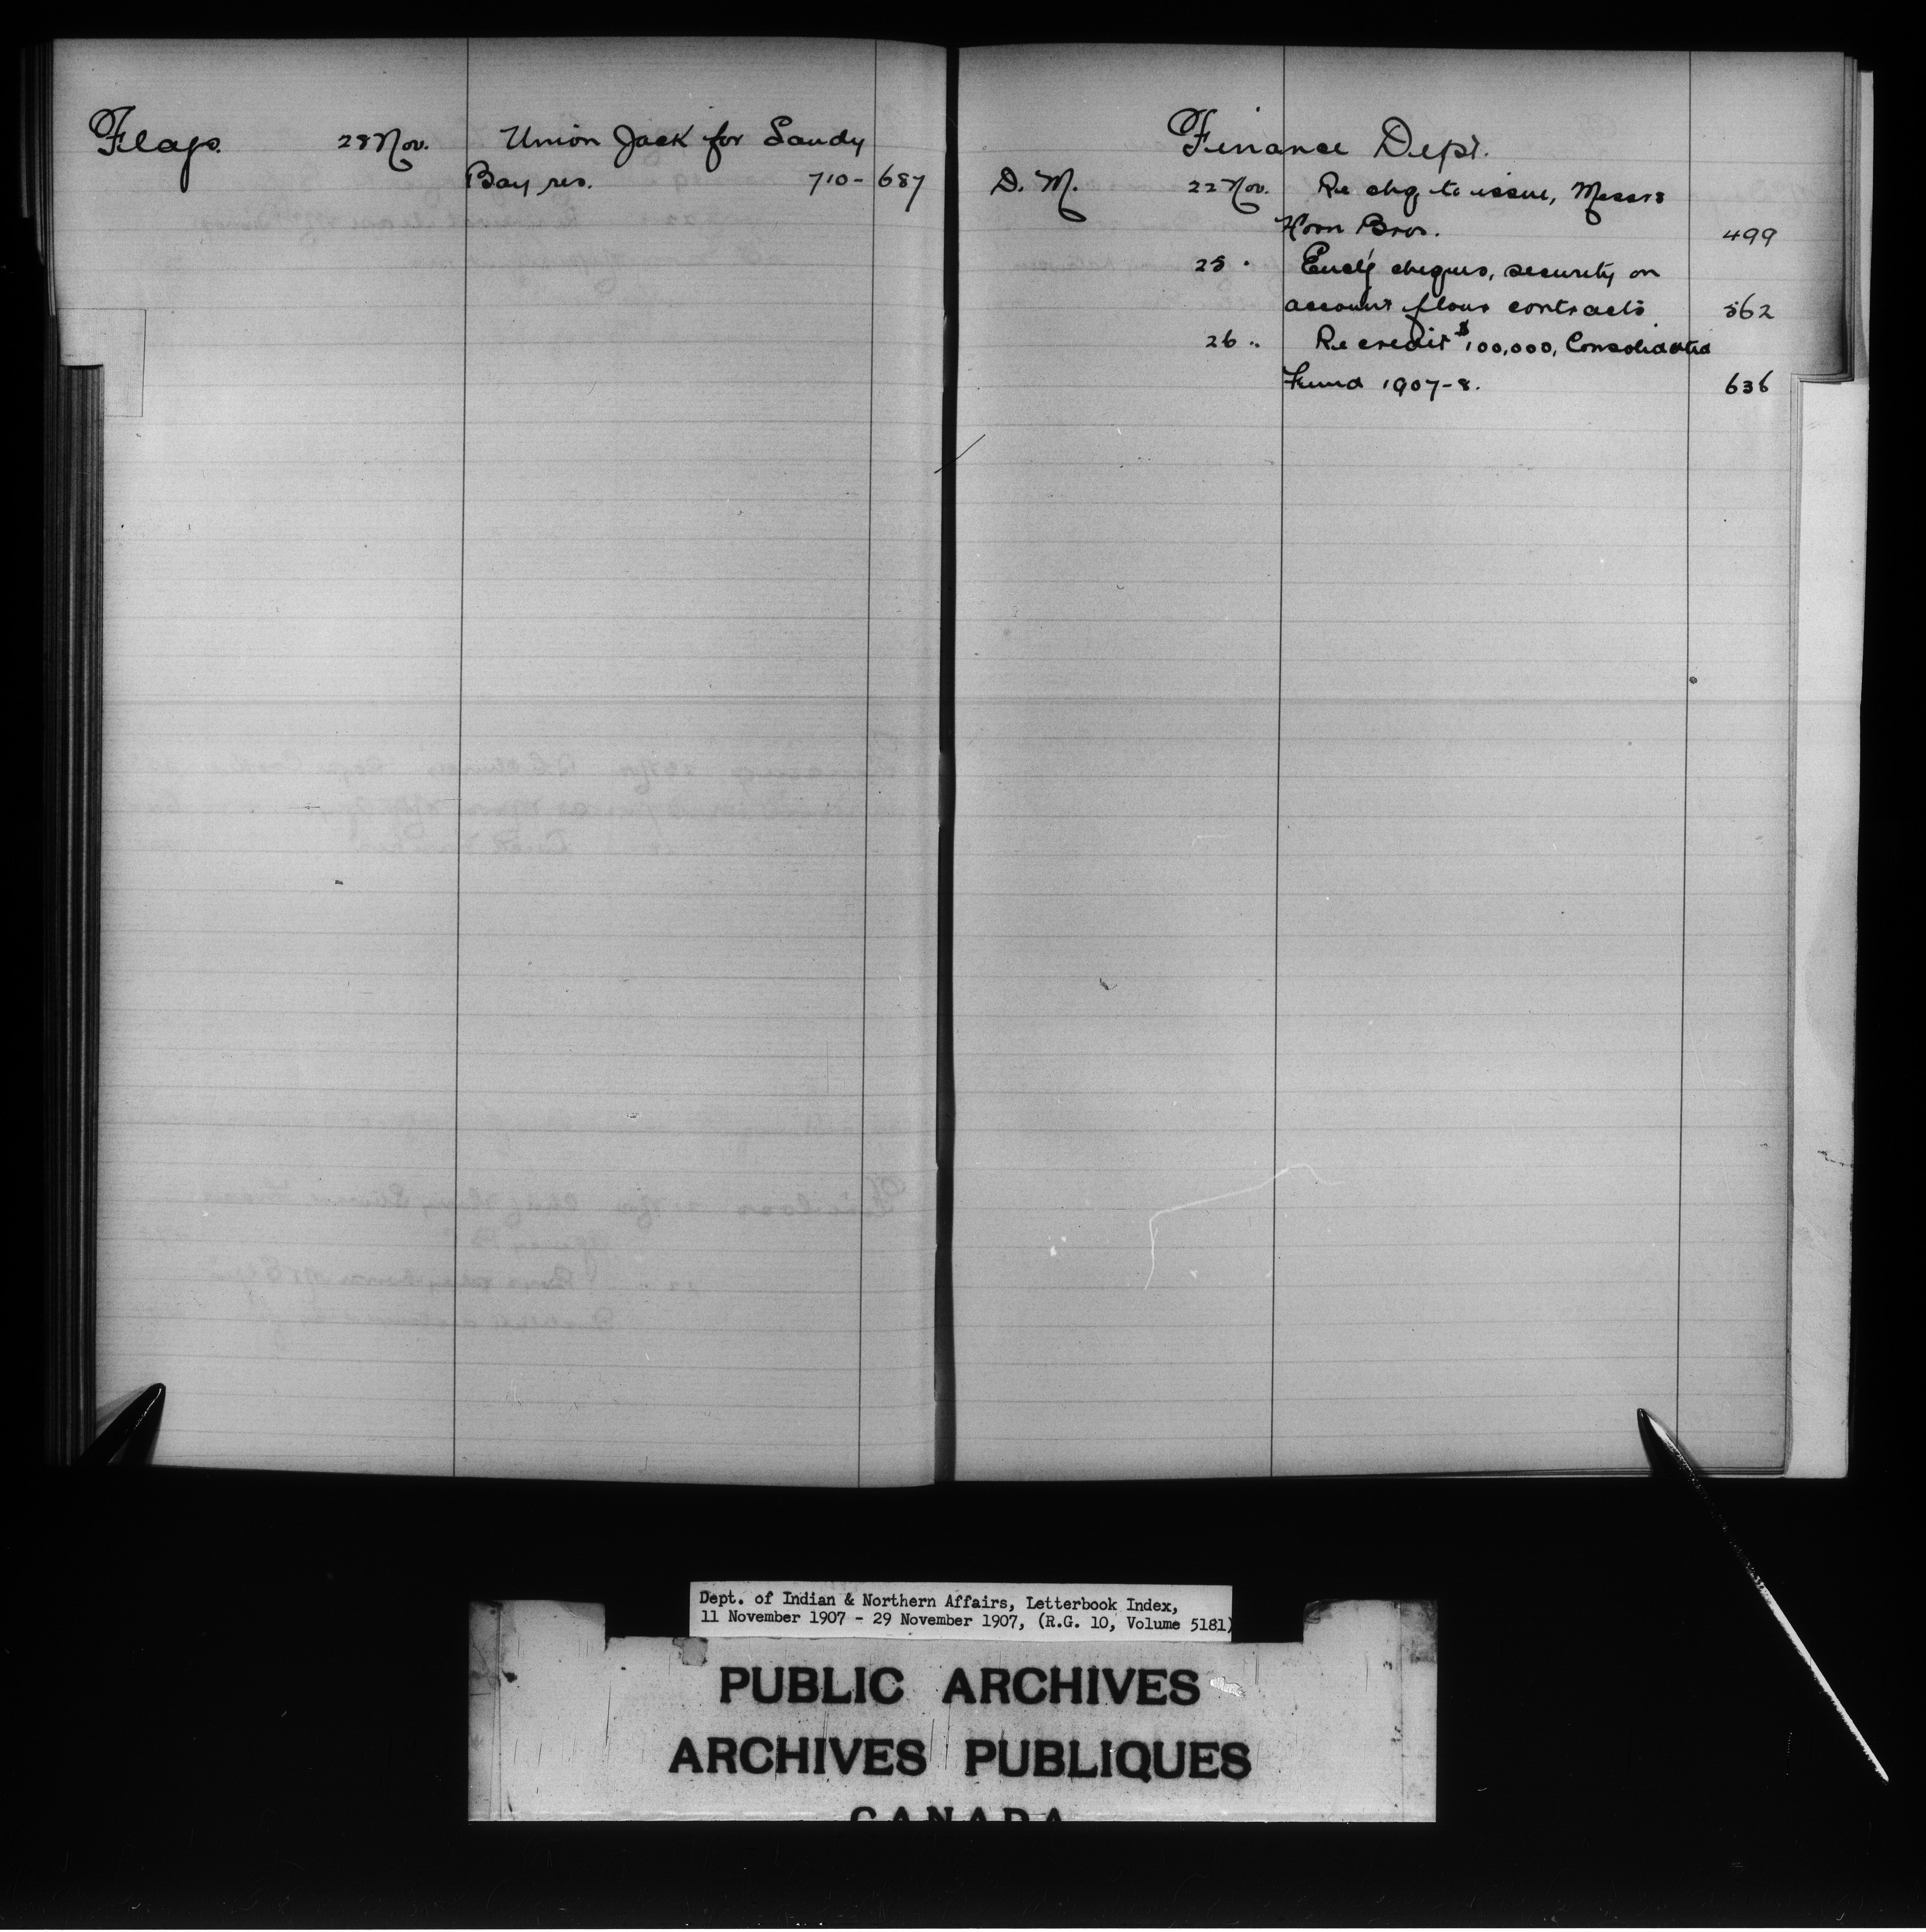 Flags. 28 Nov. Union Jack for Sandy
Bay res. 710 - 687
Finance Dept.
D. M. 22 Nov. Re chq to issue, Messrs
Horn Bros. 499
25 " Encl'g cheques, security on
account flour contracts 562
26 " Re credit $100,000, Consolidated
Fund 1907-8. 636
Dept. of Indian & Northern Affairs, Letterbook Index,
11 November 1907 - 29 November 1907, (R.G. 10, Volume 5181)
PUBLIC ARCHIVES
ARCHIVES PUBLIQUES
CANADA